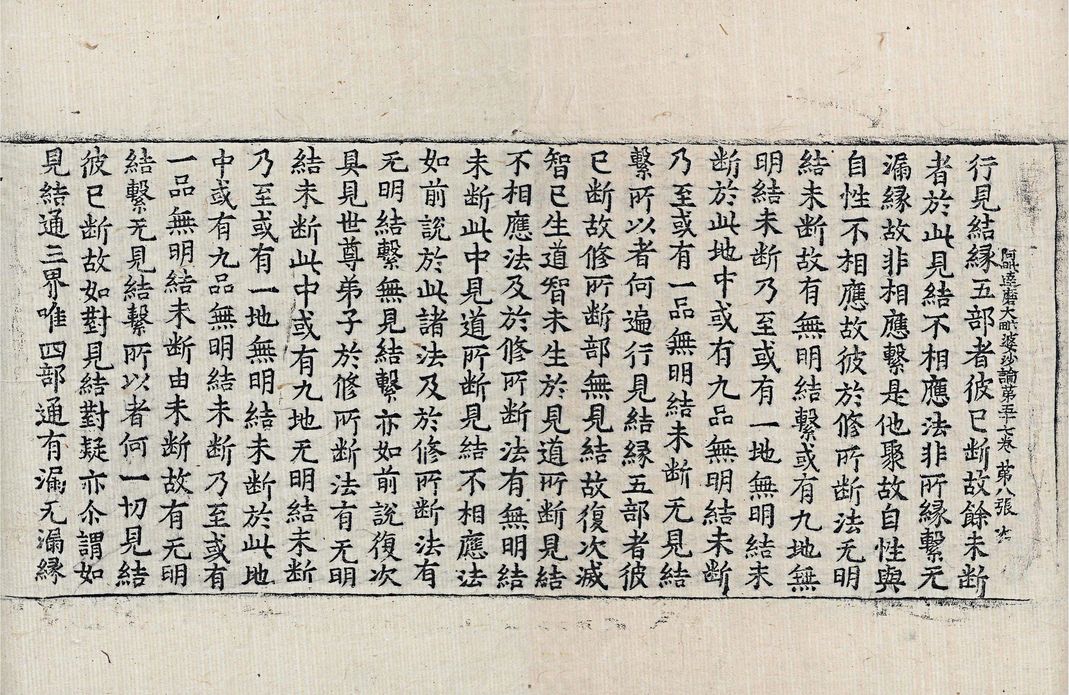 阿毗達磨大毗婆沙論第五十七卷 第八張
行見結縁五部者彼已断故餘未断
者於此見結不相應法非所縁繫无
漏縁故非相應繫是他聚故自性與
自性不相應故彼於修所断法无明
結未断故有無明結繫或有九地無
明結未断乃至或有一地無明結未
断於此地中或有九品無明結未断
乃至或有一品無明結未断无見結
繫所以者何遍行見結縁五部者彼
已断故修所断部無見結故復次滅
智已生道智未生於見道所断見結
不相應法及於修所断法有無明結
未断此中見道所断見結不相應法
如前說於此諸法及於修所断法有
无明結繫無見結繫亦如前說復次
具見世尊弟子於修所断法有无明
結未断此中或有九地无明結未断
乃至或有一地無明結未断於此地
中或有九品無明結未断乃至或有
一品無明結未断由未断故有无明
結繫无見結繫所以者何一切見結
彼已断故如對見結對疑亦尒謂如
見結通三界唯四部通有漏无漏縁